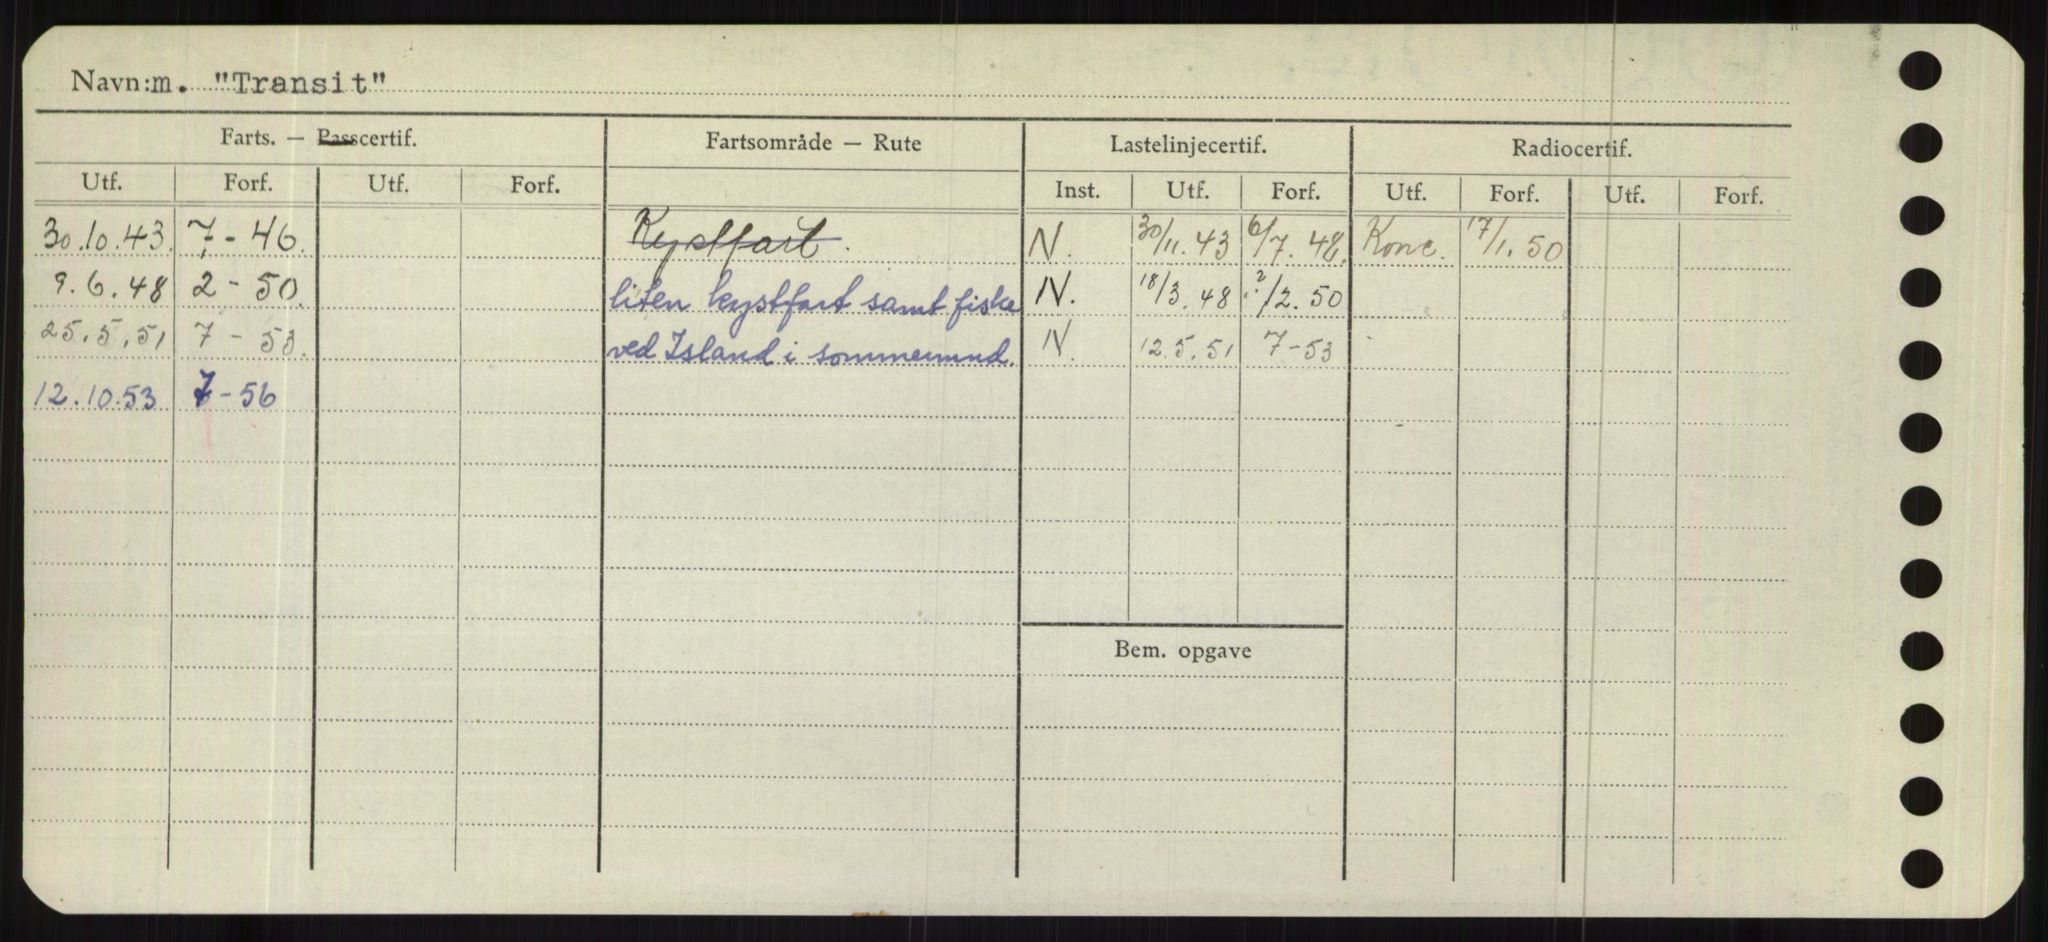 Navn: m. "Transit"
Farts. — Passcertif. Fartsområde — Rute Lastelinjecertif. Radiocertif.
Utf. Forf. Utf. Forf. Inst. Utf. Forf. Utf. Forf. Utf. Forf.
30.10.43. 7 - 46. Kystfart. N. 30/11. 43 6/7. 48. Konc. 17/1. 50
9.6.48 2 - 50. liten kystfart samt fiske N. 18/3. 48 2/2. 50
25.5.51 7 - 53. ved Island i sommermnd. N. 12.5.51 7-53
12.10.53 7-56
Bem. opgave